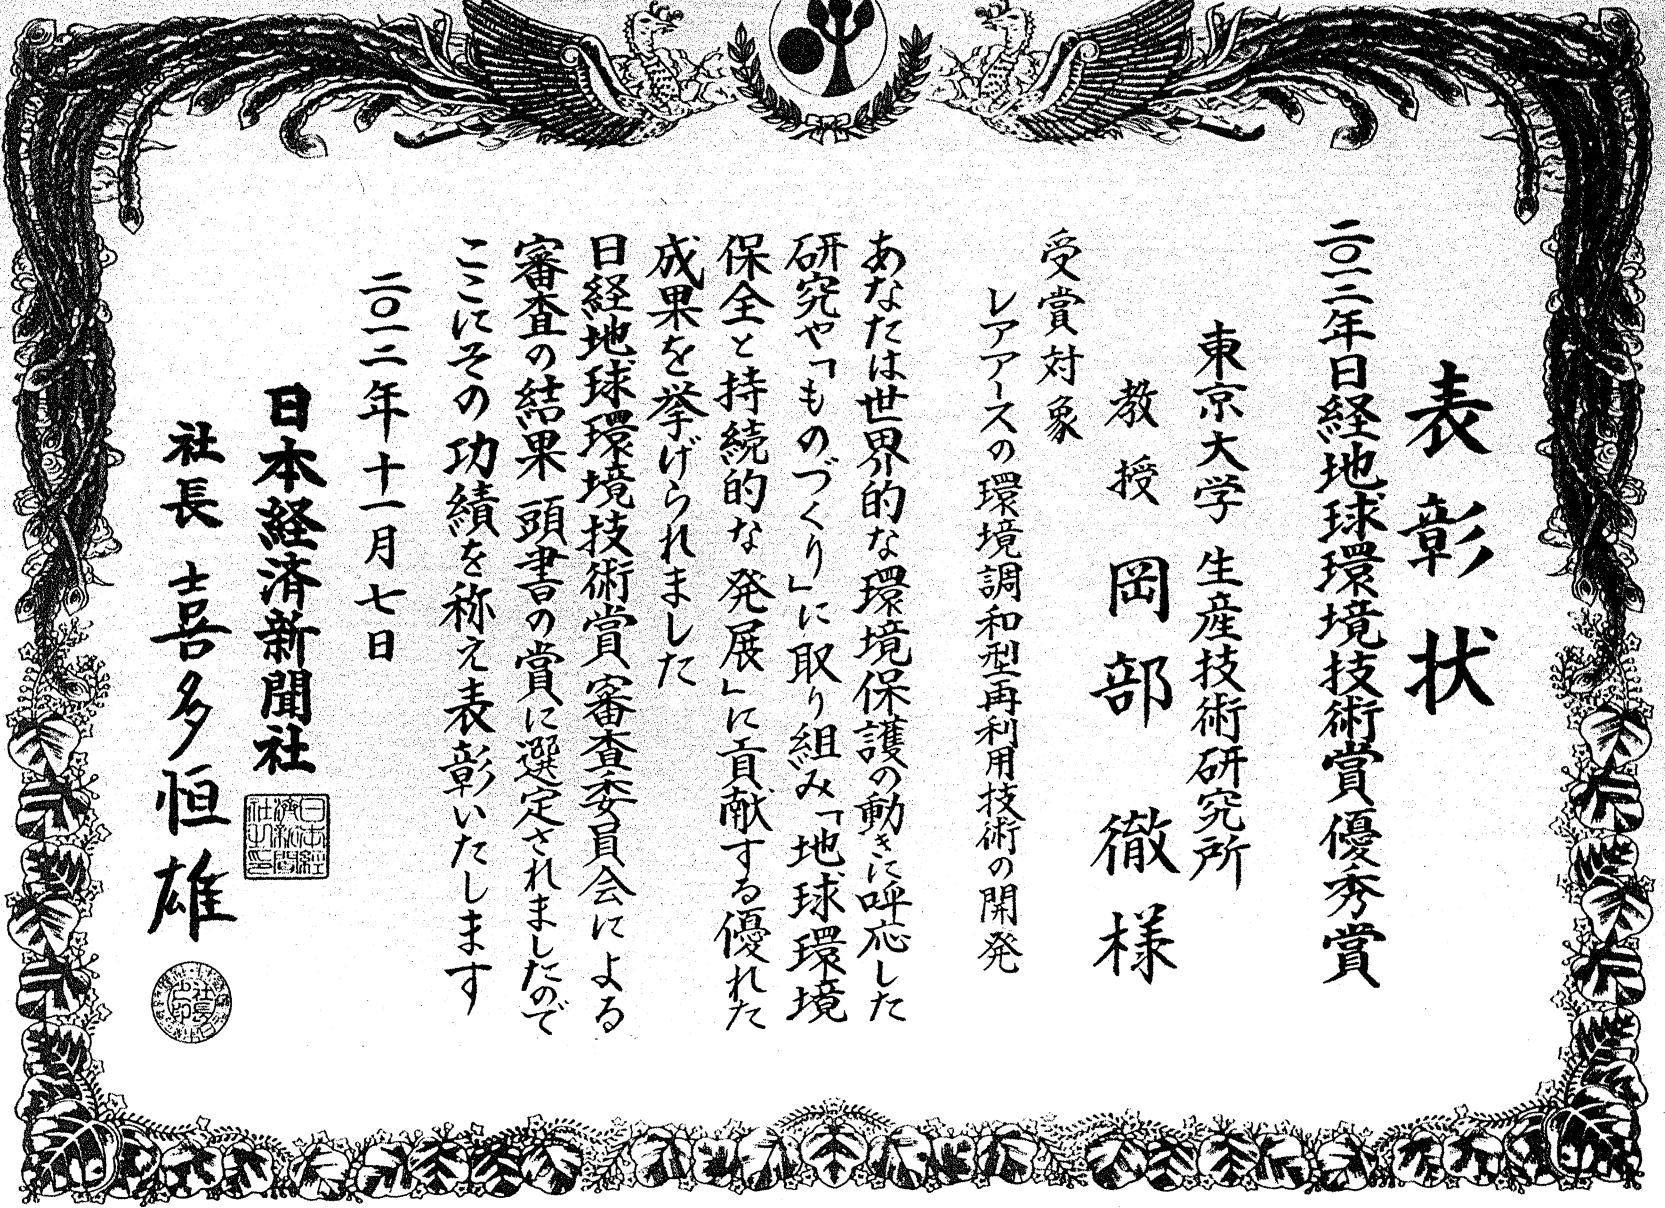 表彰状
二〇一二年日経地球環境技術賞優秀賞
東京大学 生産技術研究所
教授 岡部 徹様
受賞対象
レアアースの環境調和型再利用技術の開発
あなたは世界的な環境保護の動きに呼応した
研究や「ものづくり」に取り組み「地球環境
保全と持続的な発展」に貢献する優れた
成果を挙げられました
日経地球環境技術賞審査委員会による
審査の結果 頭書の賞に選定されましたので
ここにその功績を称え表彰いたします
二〇一二年十一月七日
日本経済新聞社
社長 喜多恒雄